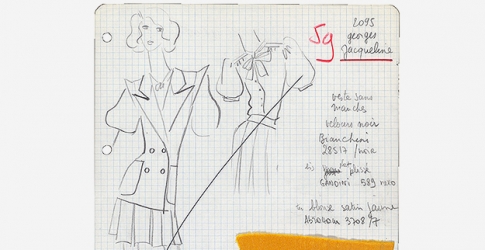 59
2095
georges
Jacqueline
veste sans
manches
velours noir
Bianchini
28517 / noir
plissé
GANDINI 589 nero
blouse satin jaune
ABRAHAM 3708 / 7